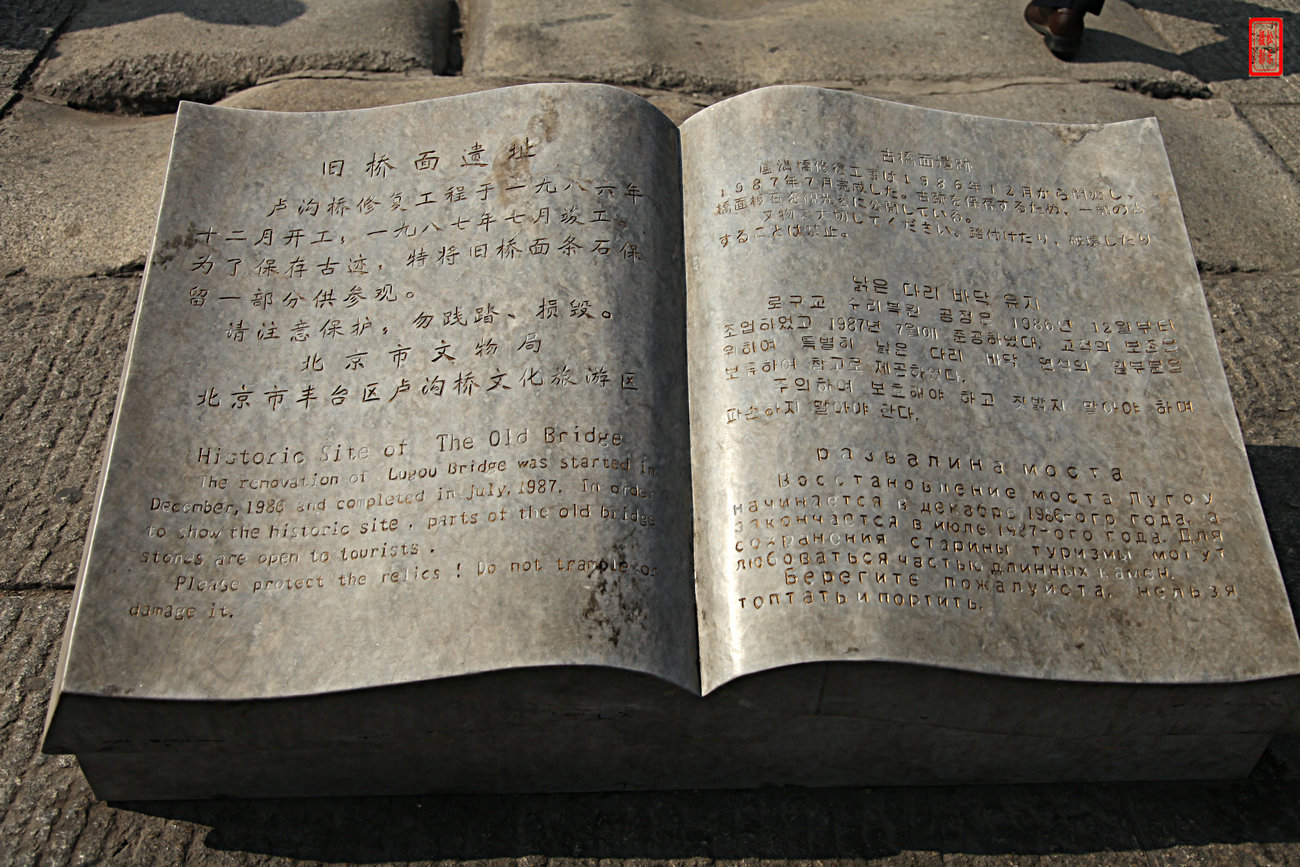 旧桥面遗址
卢沟桥修复工程于一九八六年
十二月开工，一九八七年七月竣工。
为了保存古迹，特将旧桥面条石保
留一部分供参观。
请注意保护，勿践踏、损毁。
北京市文物局
北京市丰台区卢沟桥文化旅游区
Historic Site of The Old Bridge
The renovation of Lugou Bridge was started in
December, 1986 and completed in july, 1987. In order
to show the historic site, parts of the old bridge
stones are open to tourists.
Please protect the relics! Do not trample or
damage it.
古橋面遺跡
盧溝橋修復工事は1986年12月から開始し、
1987年7月完成した。古跡を保存するため、一部の古
橋面 石を 公開している。
文物を大切してください。踏付けたり、破壊したり
することは禁止。
낡은 다리 바닥 유지
로구교 수리복원 공정은 1986년 12월부터
조업하였고 1987년 7월에 준공하였다. 고적의 보존을
위하여 특별히 낡은 다리 바닥 연석의 일부분을
보류하여 참고로 제공하였다.
주의하여 보호해야 하고 짓밟지 말아야 하며
파손하지 말아야 한다.
развалина моста
Восстановление моста Лугоу
начинается в декабре 1986-ого года, а
закончается в июле 1987-ого года. Для
сохранения старины туризмы могут
любоваться частью длинных камен.
Берегите пожалуйста, нельзя
топтать и портить.